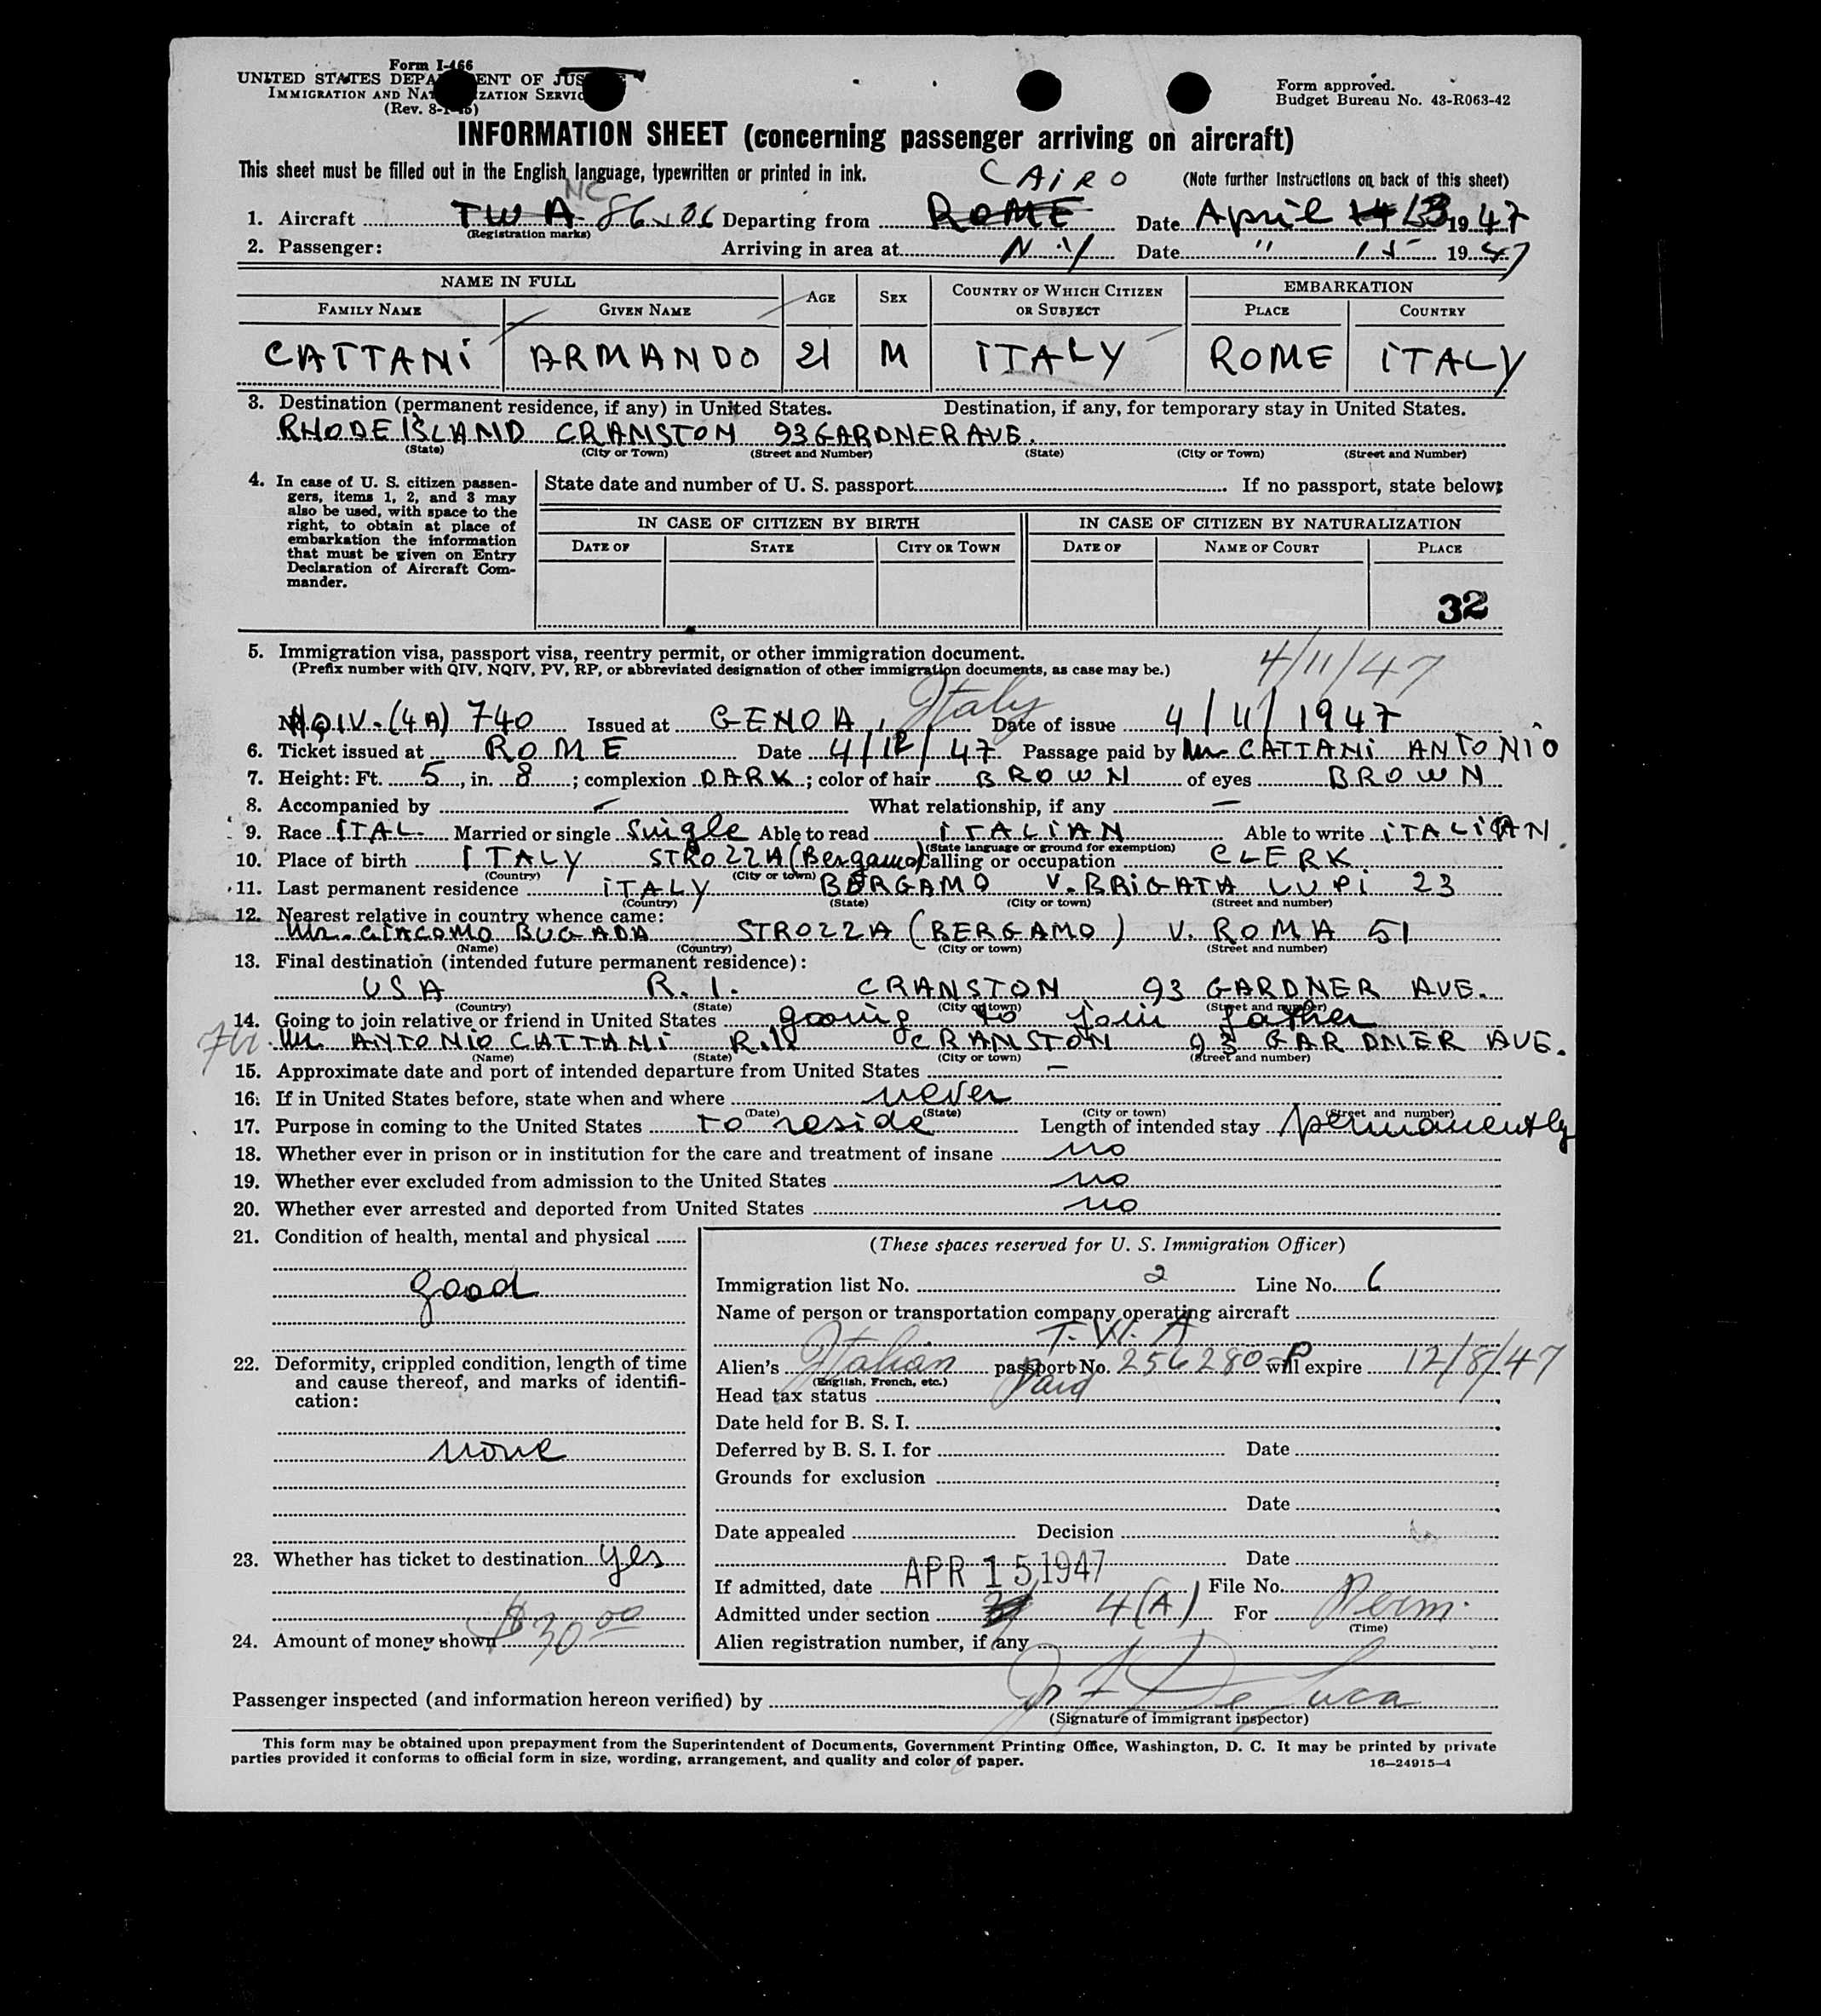 Form I-466
UNITED STATES DEPARTMENT OF JUSTICE
IMMIGRATION AND NATURALIZATION SERVICE
(Rev. 8-1-45)
Form approved.
Budget Bureau No. 43-R063-42
INFORMATION SHEET (concerning passenger arriving on aircraft)
This sheet must be filled out in the English language, typewritten or printed in ink.
CAIRO (Note further instructions on back of this sheet)
NC
1. Aircraft TWA Departing from ROME Date April 14 13 1947
(Registration marks)
2. Passenger: Arriving in area at N.Y Date " 15 1947
NAME IN FULL AGE SEX COUNTRY OF WHICH CITIZEN OR SUBJECT EMBARKATION
FAMILY NAME GIVEN NAME PLACE COUNTRY
CATTANI ARMANDO 21 M ITALY ROME ITALY
3. Destination (permanent residence, if any) in United States. Destination, if any, for temporary stay in United States.
RHODE ISLAND CRANSTON 93 GARDNER AVE.
(State) (City or Town) (Street and Number) (State) (City or Town) (Street and Number)
4. In case of U. S. citizen passen-
gers, items 1, 2, and 3 may
also be used, with space to the
right, to obtain at place of
embarkation the information
that must be given on Entry
Declaration of Aircraft Com-
mander.
State date and number of U. S. passport If no passport, state below:
IN CASE OF CITIZEN BY BIRTH IN CASE OF CITIZEN BY NATURALIZATION
DATE OF STATE CITY OR TOWN DATE OF NAME OF COURT PLACE
32
5. Immigration visa, passport visa, reentry permit, or other immigration document.
(Prefix number with QIV, NQIV, PV, RP, or abbreviated designation of other immigration documents, as case may be.)
4/11/47
NQIV-(4A) 740 Issued at GENOA, Italy Date of issue 4/11/1947
6. Ticket issued at ROME Date 4/12/47 Passage paid by Mr CATTANI ANTONIO
7. Height: Ft. 5, in. 8; complexion DARK; color of hair BROWN of eyes BROWN
8. Accompanied by — What relationship, if any —
9. Race ITAL. Married or single Single Able to read ITALIAN Able to write ITALIAN
(State language or ground for exemption)
10. Place of birth ITALY STROZZA (Bergamo) Calling or occupation CLERK
(Country) (City or town)
11. Last permanent residence ITALY BERGAMO V. BRIGATA LUPI 23
(Country) (State) (City or town) (Street and number)
12. Nearest relative in country whence came:
Mr. GIACOMO BUGADA STROZZA (BERGAMO) V. ROMA 51
(Name) (Country) (City or town) (Street and number)
13. Final destination (intended future permanent residence):
USA R.I. CRANSTON 93 GARDNER AVE.
(Country) (State) (City or town) (Street and number)
14. Going to join relative or friend in United States going to join father
Mr ANTONIO CATTANI R.I. CRANSTON 93 GARDNER AVE.
(Name) (State) (City or town) (Street and number)
15. Approximate date and port of intended departure from United States —
16. If in United States before, state when and where never
(Date) (State) (City or town) (Street and number)
17. Purpose in coming to the United States to reside Length of intended stay permanently
18. Whether ever in prison or in institution for the care and treatment of insane no
19. Whether ever excluded from admission to the United States no
20. Whether ever arrested and deported from United States no
21. Condition of health, mental and physical
good
22. Deformity, crippled condition, length of time
and cause thereof, and marks of identifi-
cation:
none
23. Whether has ticket to destination yes
24. Amount of money shown $30.00
(These spaces reserved for U. S. Immigration Officer)
Immigration list No. 2 Line No. 6
Name of person or transportation company operating aircraft
T.W.A
Alien's Italian passport No. 256280-P will expire 12/8/47
(English, French, etc.)
Head tax status Paid
Date held for B. S. I.
Deferred by B. S. I. for Date
Grounds for exclusion
Date
Date appealed Decision
Date
If admitted, date APR 15 1947 File No.
Admitted under section 4(A) For Perm.
(Time)
Alien registration number, if any
Passenger inspected (and information hereon verified) by De Luca
(Signature of immigrant inspector)
This form may be obtained upon prepayment from the Superintendent of Documents, Government Printing Office, Washington, D. C. It may be printed by private
parties provided it conforms to official form in size, wording, arrangement, and quality and color of paper.
16—24915-4